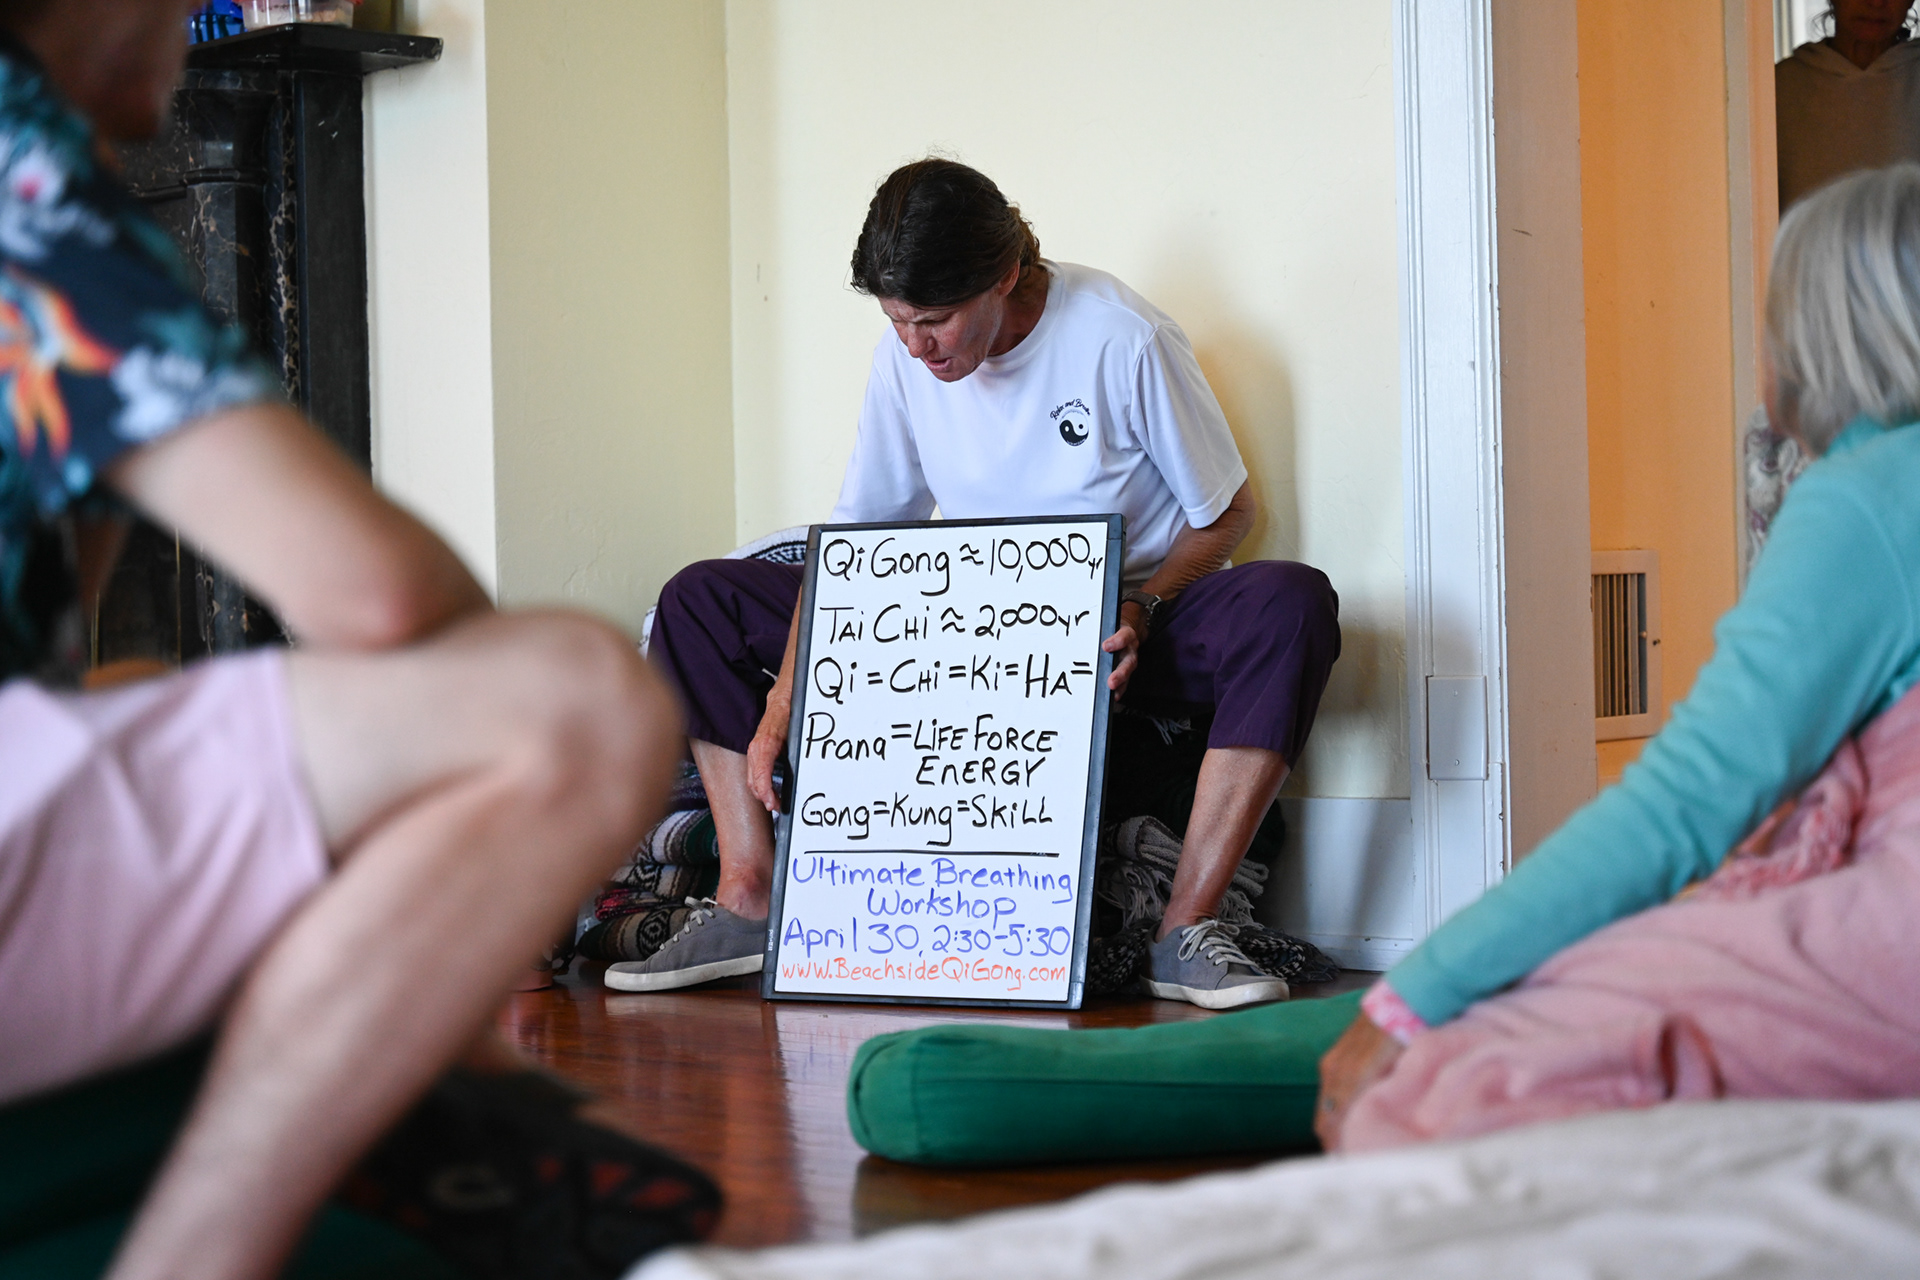 Qi Gong ≈ 10,000yr
TAi CHi ≈ 2,000yr
Qi = CHi = Ki = HA =
Prana = LiFE FORCE
ENERGY
Gong = Kung = SKiLL
Ultimate Breathing
Workshop
April 30, 2:30-5:30
www.BeachsideQiGong.com
Relax and